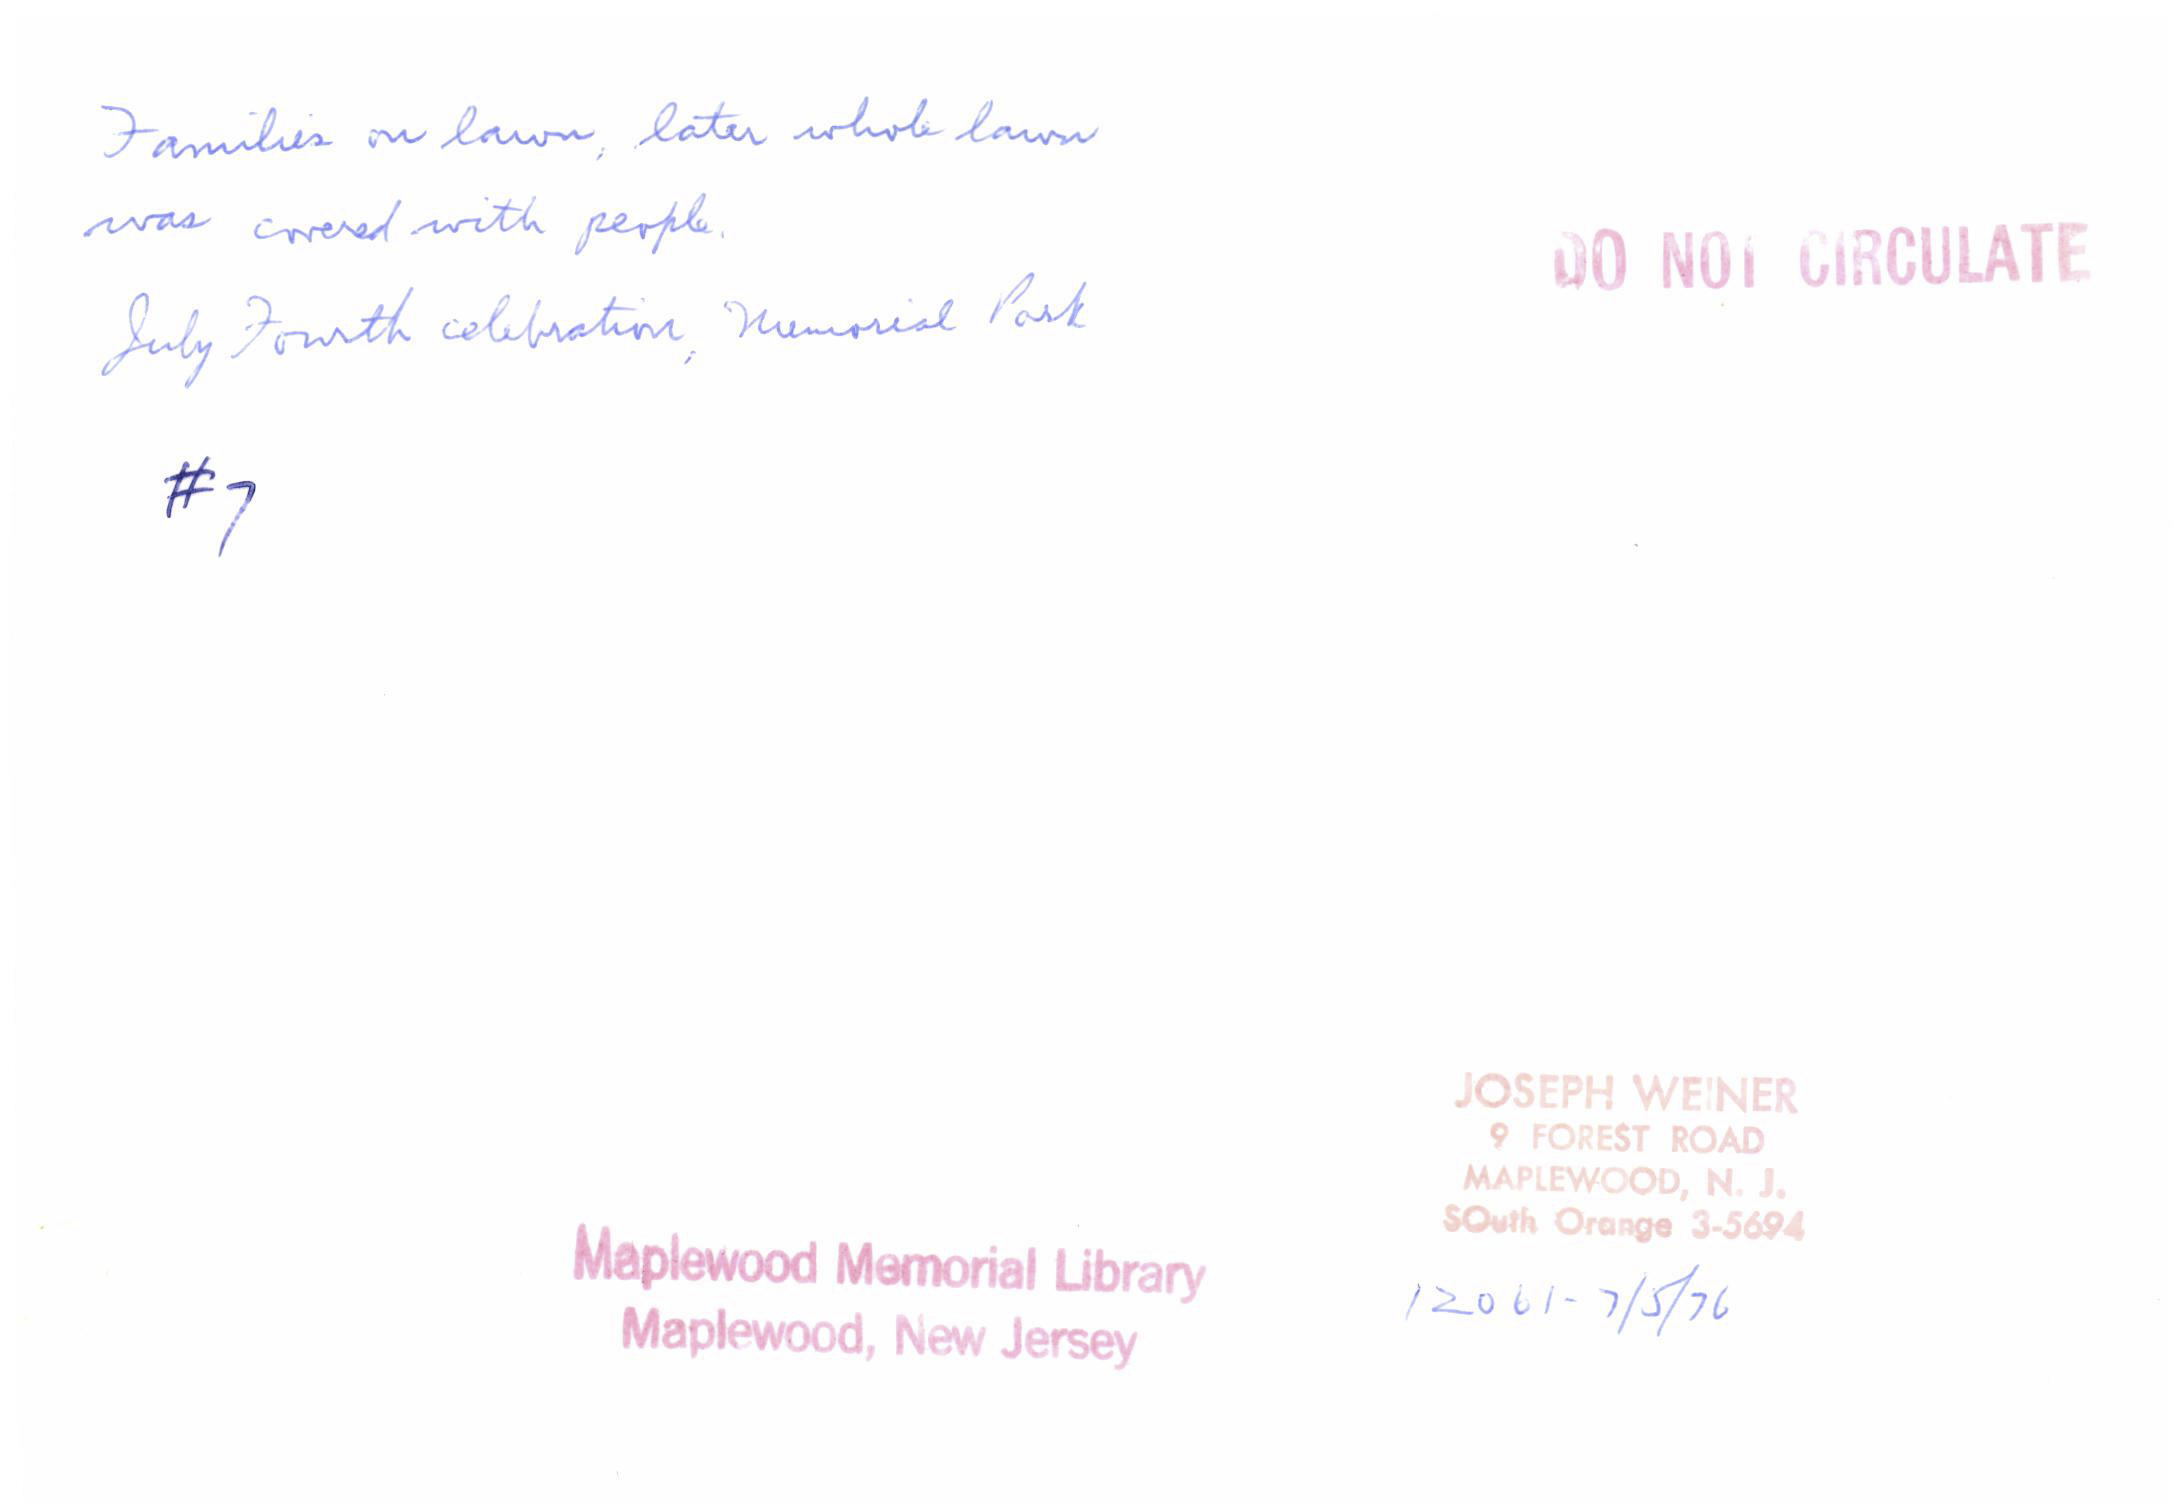 Families on lawn, later whole lawn
was covered with people.
July Fourth celebration, Memorial Park
#7
DO NOT CIRCULATE
JOSEPH WEINER
9 FOREST ROAD
MAPLEWOOD, N. J.
SOuth Orange 3-5694
12061- 7/5/76
Maplewood Memorial Library
Maplewood, New Jersey